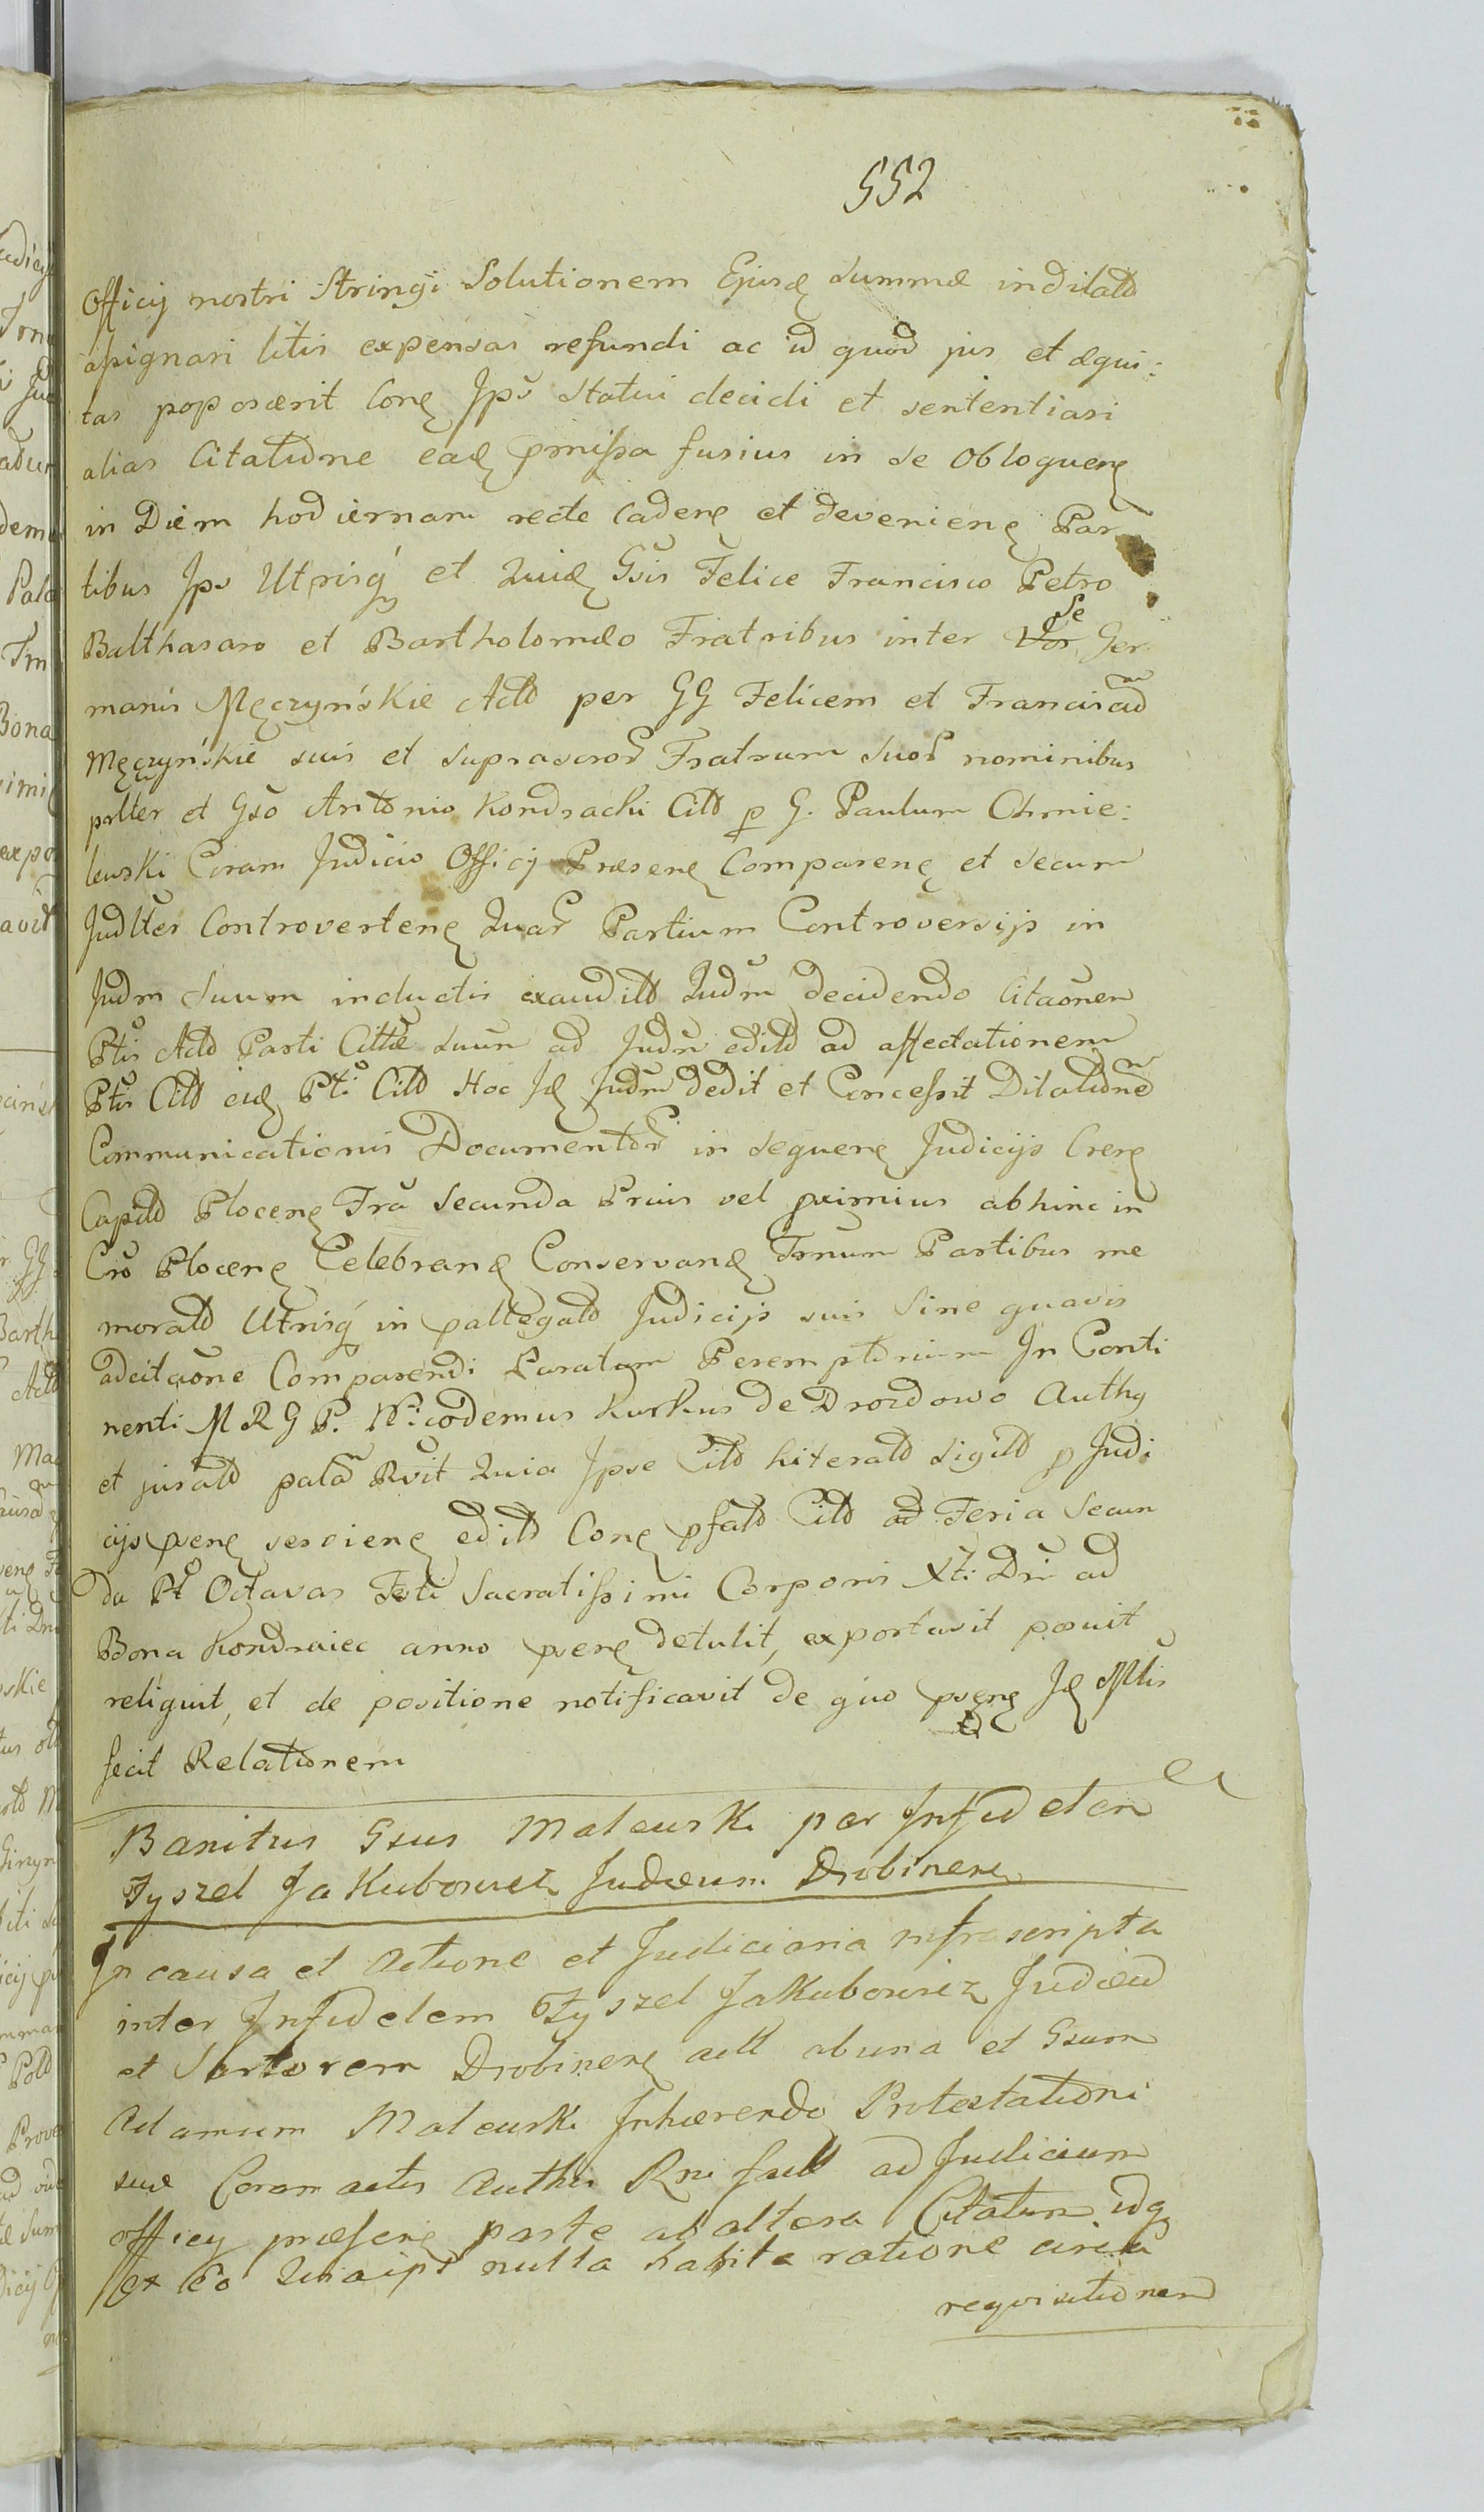 552
Officij nostri Stringi Solutionem Ejusd Summæ indilato
assignari litis expensas refundi ac id quod jus et æqui:
tas poposcerit Conę Jps Statui decidi et sententiari
alias Citatione eadę pmissa fusius in se Obloquenę
in Diem hodiernam recte Cadenę et devenienę Par
tibus Jps Utrisq et Quidę Gsis Felice Francisco Petro
Balthasaro et Bartholomæo Fratribus inter Vos Se Ger
manis Męczyńskie Acto per GG Felicem et Franciscum
Męczyńskie suis et suprascror Fratrum suor nominibus
pslter et Gso Antonio Kondracki Cito p G. Paulum Chmie:
lewski Coram Judicio Officij Præsenę Comparenę et secum
Judlter Controvertenę Quar Partium Controversijs in
Judm Suum inductis exaudito Judm decidendo Citaonem
Ptis Acto Parti Cittæ suum ad Judm edito ad affectationem
Ptis Cito eidę Pti Cito Hoc Jdę Judm dedit et Concessit Dilationem
Communicationis Documentor in sequenę Judicijs Crenę
Capito Plocenę Fra Secunda Pruis vel pximius abhinc in
Cro Plocenę Celebrandę Conservandę Trnum Partibus me
morato Utrisq in pallegato Judicijs suis Sine quavis
adcitaone Comparendi Paratum Peremptorium In Conti
nenti MRGP. Nicodemus Kurkus de Drozdowo Authy
et jurato palam Rvit Quia Jpse Cito literato sigilto p Judi
cijs psenę servienę edito Conę pfato Cito ad Feria Secun
da Pt Octavas Festi Sacratissimi Corporis Xti Dni ad
Bona Kondraiec anno psenę detulit, exportavit posuit
reliquit, et de positione notificavit de quo psenę Jdę Mlis
fecit Relationem
Banitus Gsus Maleuski per Infidelem
Fyszel Jakubowicz Judæum Drobinenę
In causa et Actione et Judiciaria infrascripta
inter Infidelem Fyszel Jakubowicz Judæum
et Sartorem Drobinenę actt ab una et Gsum
Adamum Maleuski Inhærendo Protestationi
suæ Coram actis Authis Rni factt ad Judicium
officij præsenę parte ab altera Citatum idq
Ex Eo Quia ips nulla habita ratione circa
requisitionem